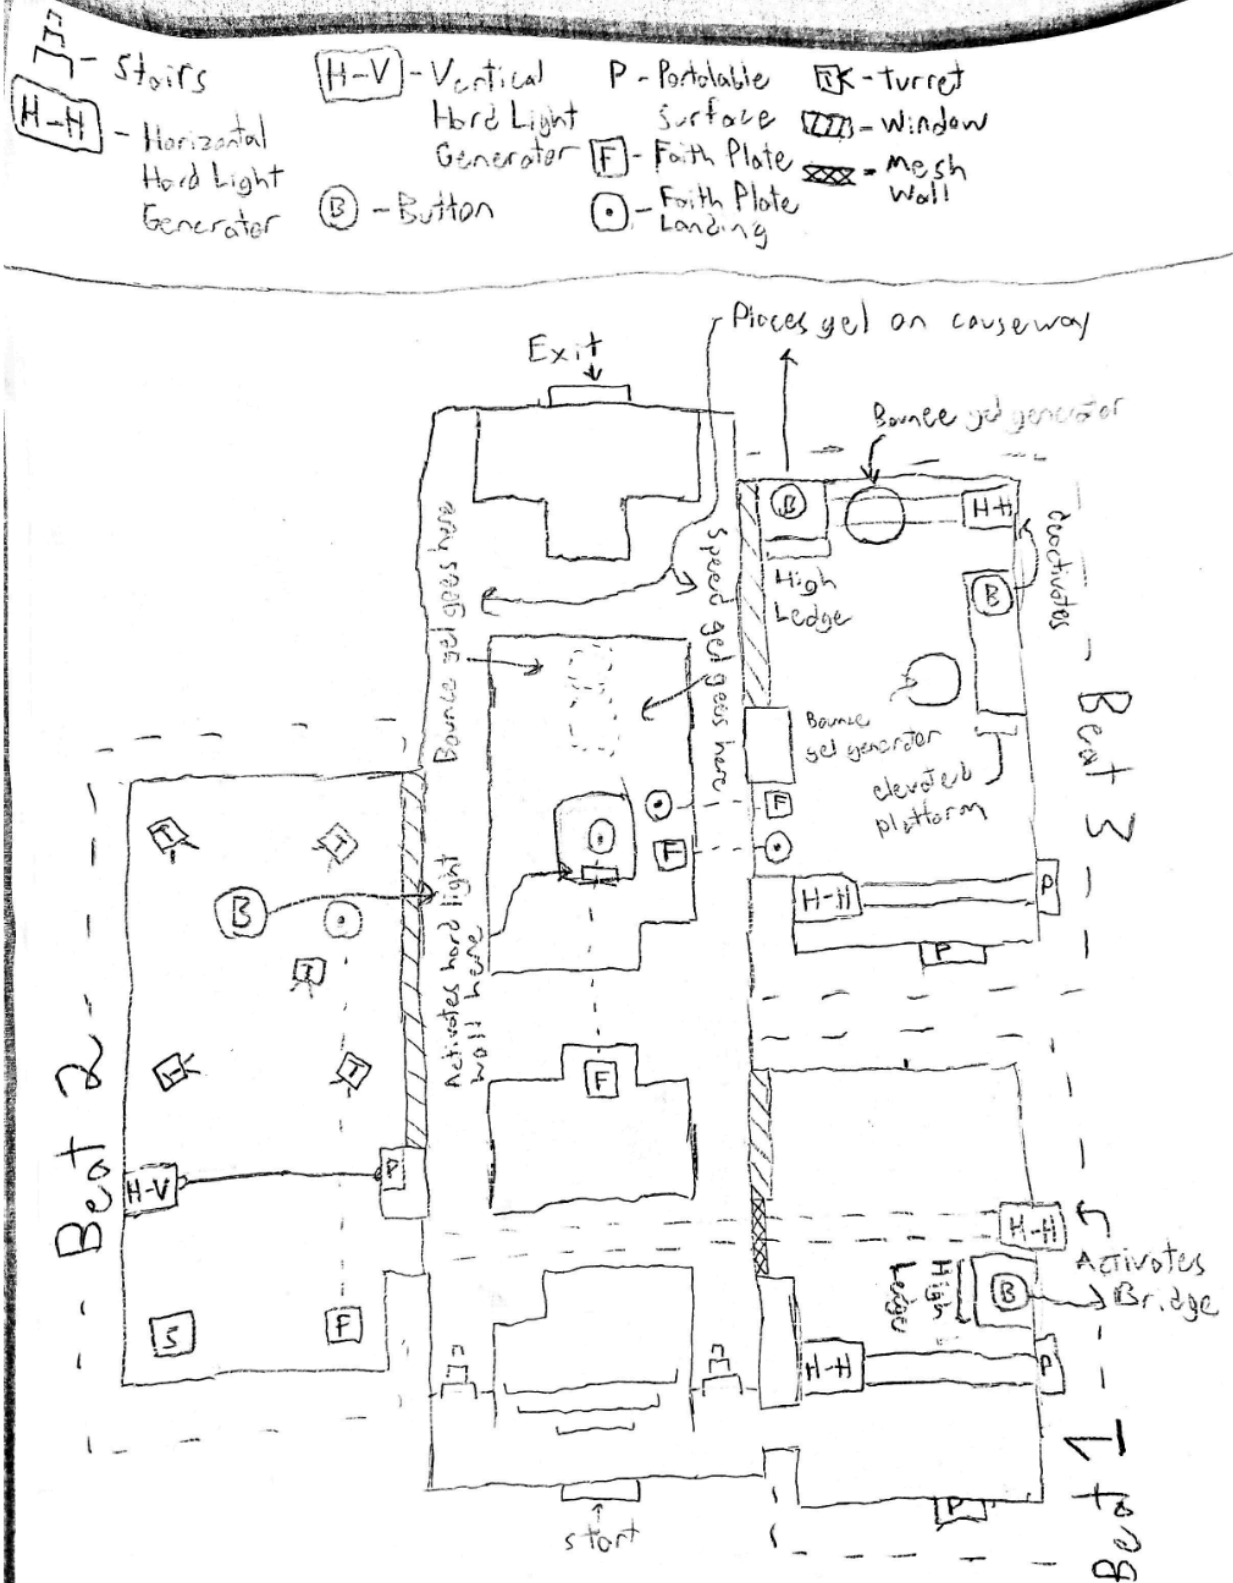 - Stairs
H-H - Horizontal
Hard Light
Generator
H-V - Vertical
Hard Light
Generator
B - Button
P - Portalable
Surface
F - Faith Plate
- Faith Plate
Landing
T - turret
- Window
- Mesh
Wall
Places gel on causeway
Exit
Bounce gel generator
B
H-H
deactivates
High
Ledge
B
Bounce gel goes here
Speed gel goes here
Bounce
gel generator
elevated
platform
Beat 3
F
F
H-H
P
P
T
T
B
T
T
T
Activates hard light
wall here
Beat 2
H-V
P
S
F
F
H-H
Activates
Bridge
High
Ledge
B
H-H
P
P
Beat 1
start